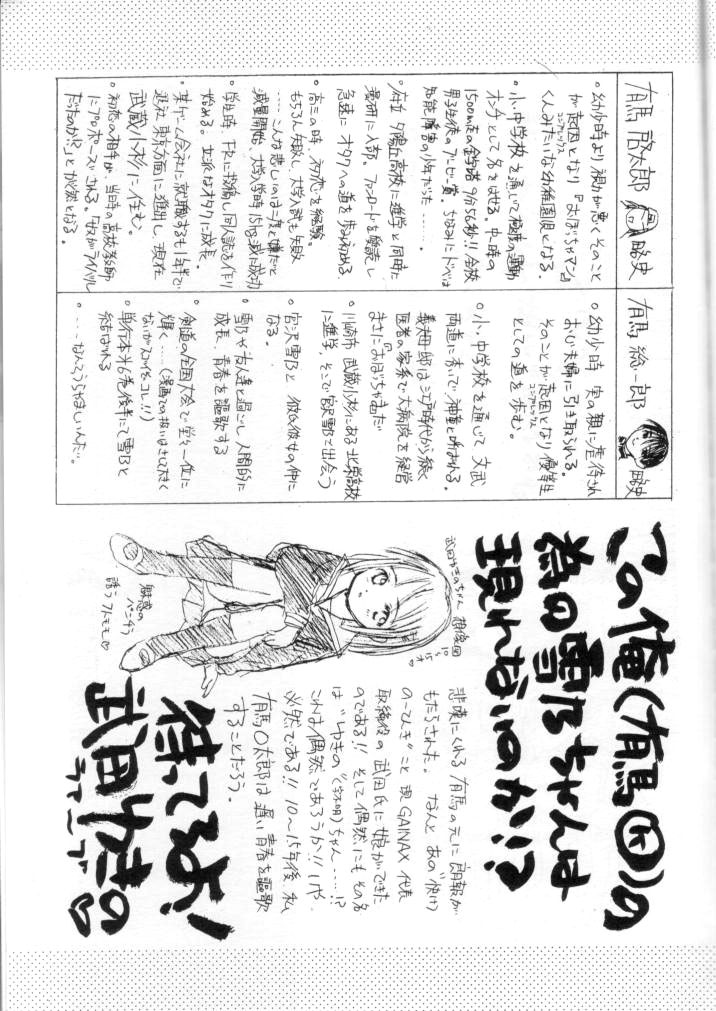 有馬 啓太郎 略史
。幼少時より視力が悪くそのこと
が起因となり『おぼっちゃマン』
くんみたいな幼稚園児となる。
。小・中学校を通じて極度の運動
オンチとして名をはせる。中一時の
1500m走の金字塔 9分56秒!! 全校
男子生徒のブービー賞。ちなみにドベは
知能障害の少年だった……。
。府立 夕陽丘高校に進学と同時に
漫研に入部。ファンロードを購読し
急速にオタクへの道を歩み始める。
。高三の時、初恋を経験。
もちろん失敗し、大学入試も失敗
……こんな悲しいのは二度と嫌だと
減量開始。大学入学時 15kg減に成功
。学生時、FRに投稿し同人誌を作り
始める。立派なオタクに成長。
。某ゲーム会社に就職するも1年半で
退社 東京方面に進出し、現在
武蔵小杉に住む。
。初恋の相手が、当時の高校教師
にプロポーズされる。「女がライバル
だったのか?」とが然となる。
有馬 総一郎 略史
。幼少時 実の親に虐待され
おじ夫婦に引き取られる。
そのことが起因となり 優等生
コンプレックス
としての道を歩む。
。小・中学校を通じて 文武
両道に秀いで、神童と呼ばれる。
義父母邸は江戸時代から続く
医者の家系で大病院を経営
まさに『おぼっちゃま』だ
。川崎市 武蔵小杉にある 北栄高校
に進学。そこで宮沢雪乃と出会う
。宮沢雪乃と 彼氏彼女の仲に
なる。
。雪乃や友人達と過ごし、人間的に
成長、青春を謳歌する
。剣道の全国大会で堂々一位に
輝く……(漫画での扱いはさして大きく
ないがスゴイぞコレ!!)
。単行本第6巻後半にて雪乃と
結ばれる
。……なんてうらやましいんだ。
この俺(有馬㋔)の
為の雪乃ちゃんは
現れないのか!?
悲嘆にくれる 有馬の元に 朗報が
もたらされた。 なんと あの"仰け
の〜てんき"こと 現GAINAX 代表
取締役の 武田氏に 娘ができた
のである!! そして偶然にも その名
は"ゆきの"(字不明)ちゃん……!?
これは偶然であろうか!! いや、
必然である!! 10〜15年後、私
有馬○太郎は 遅い青春を謳歌
することだろう。
武田ゆきのちゃん 想像図
10〜15才♡
魅惑の
パンチラ
誘うフトモモ♡
待ってるよ!
武田ゆきの
ラァ〜ブ♡